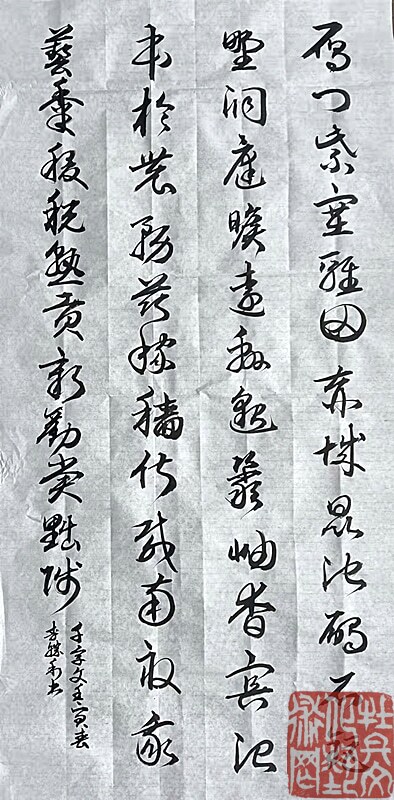 雁门紫塞雞田赤城昆池碣石鉅
野洞庭曠遠綿邈巖岫杳冥治
本於農務茲稼穡俶載南畝我
藝黍稷稅熟貢新勸賞黜陟
千字文壬寅春
李勝利书